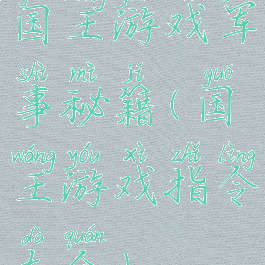 国王游戏军
shì mì jí guó
事秘籍(国
wáng yóu xì zhǐ lìng
王游戏指令
dà quán
大全)